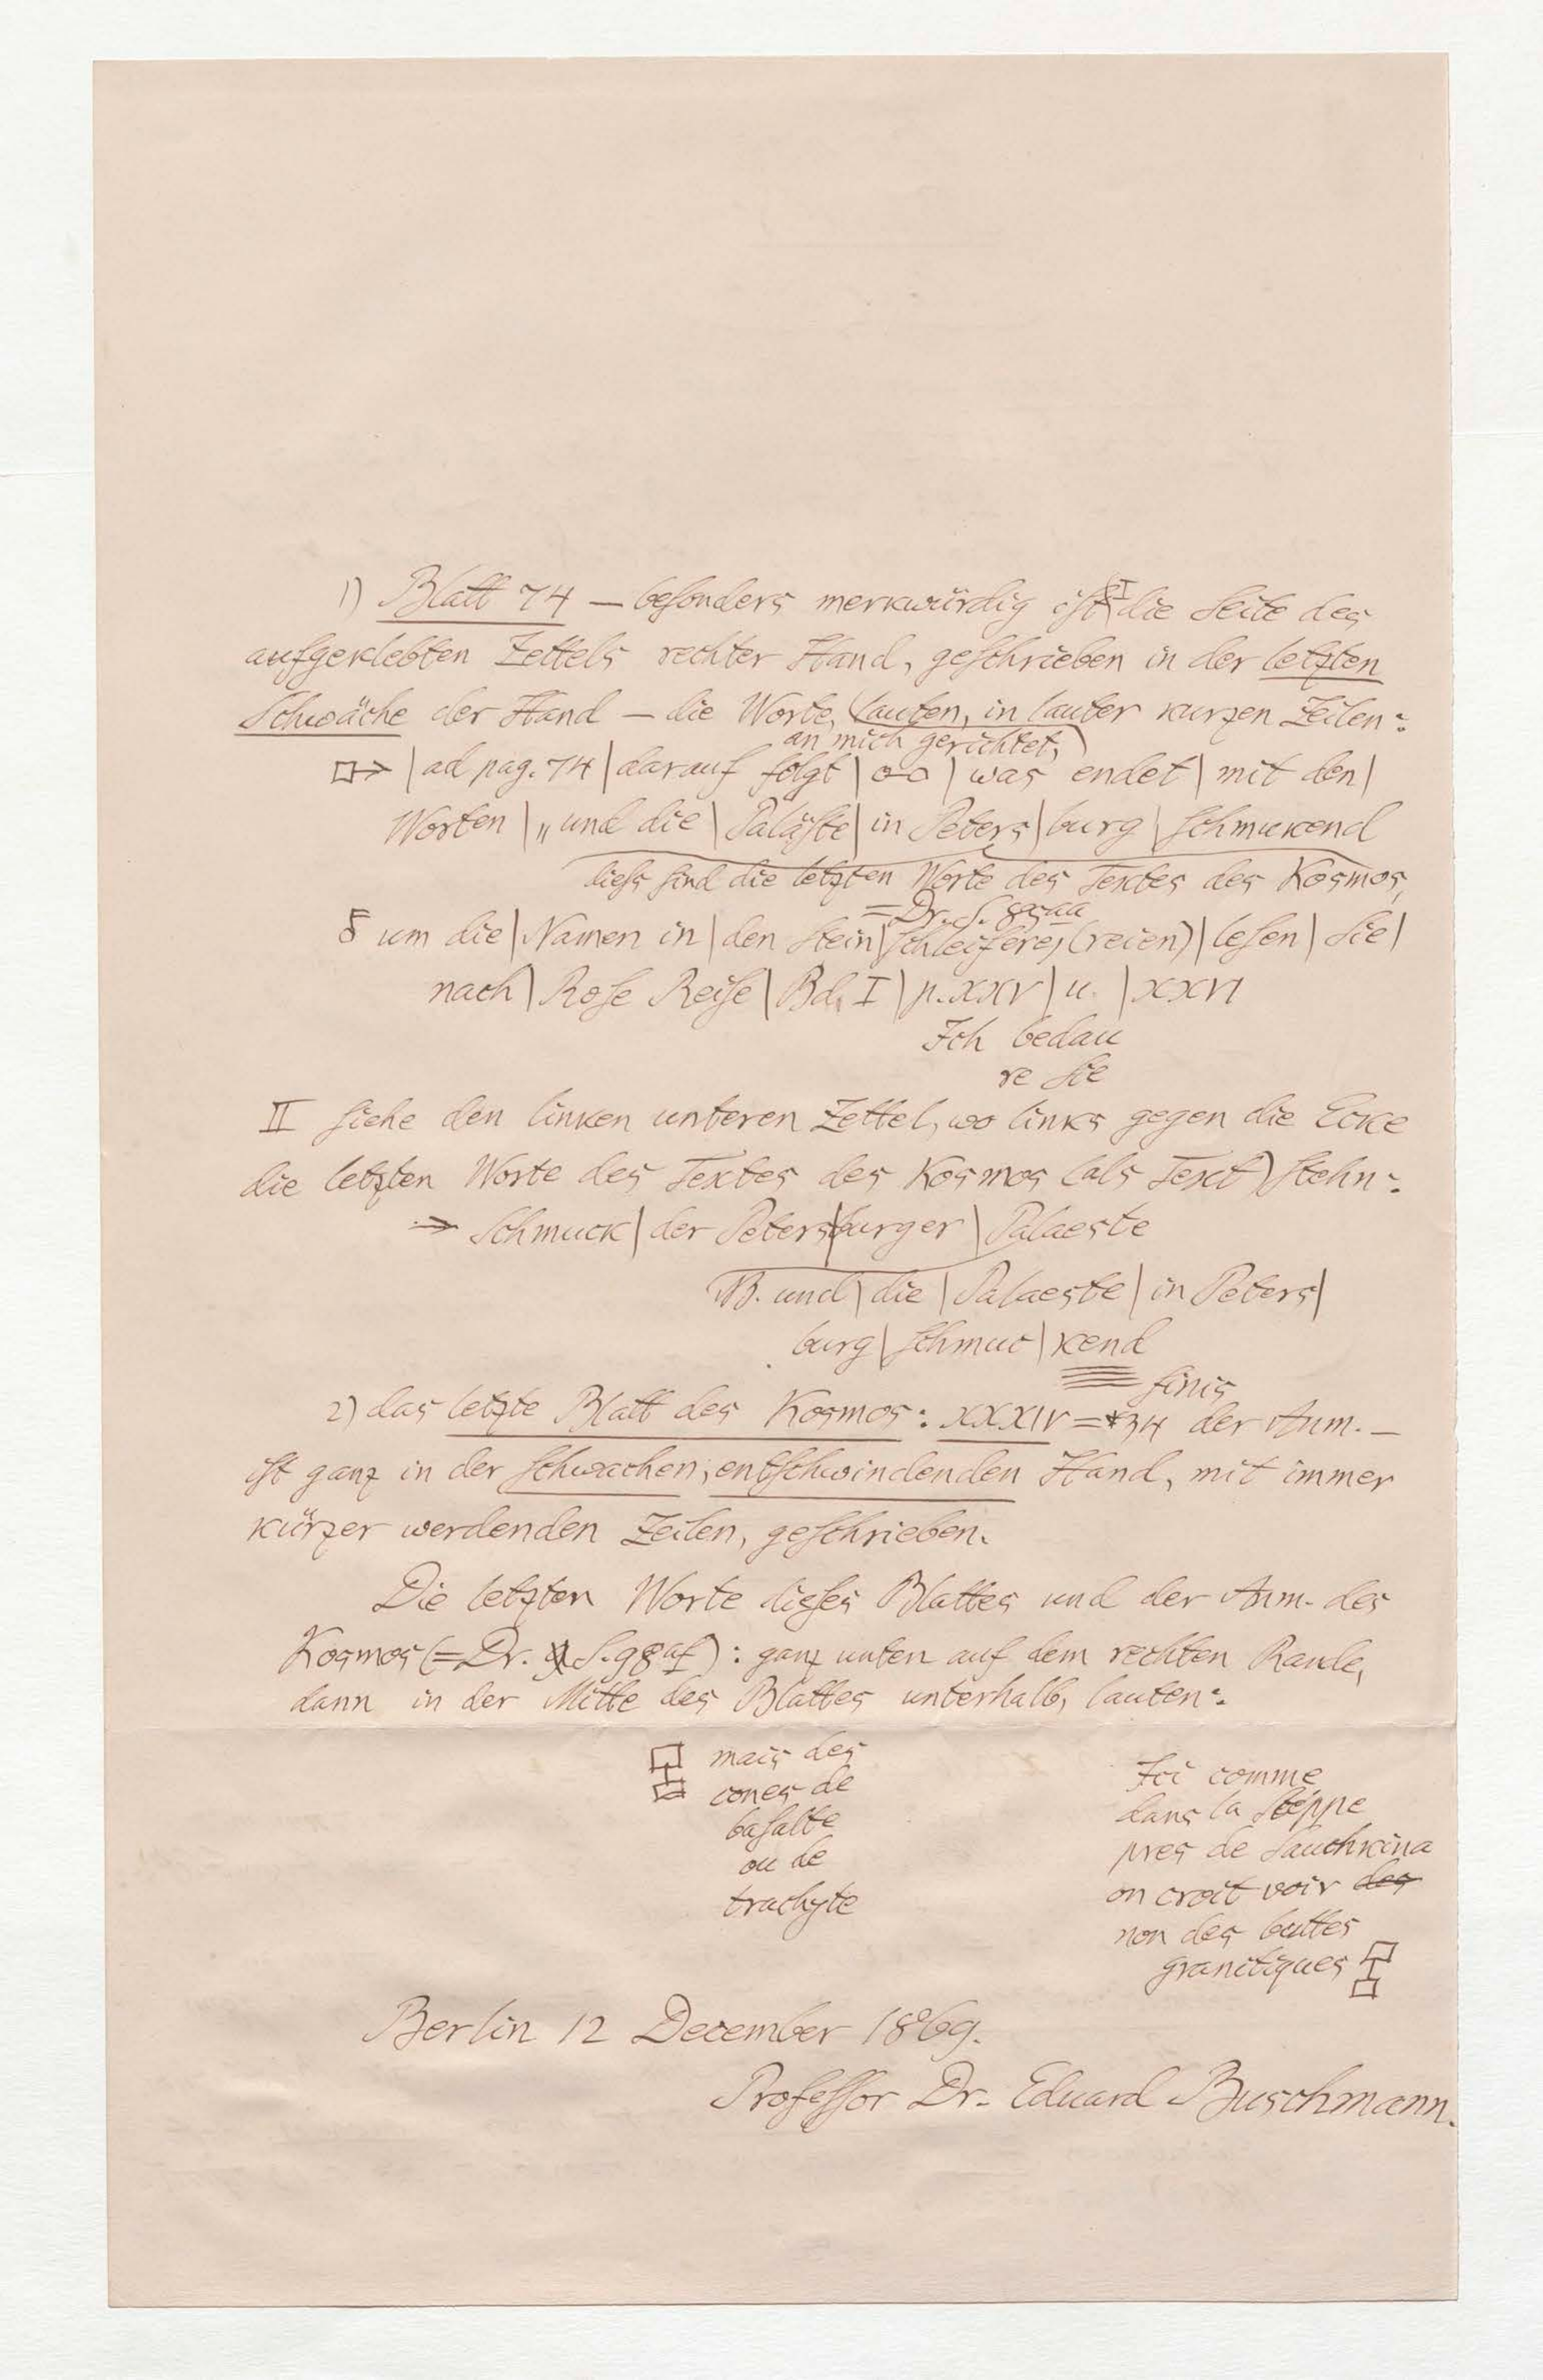 1) Blatt 74 — besonders merkwürdig ist I die Seite des
aufgeklebten Zettels rechter Hand, geschrieben in der letzten
Schwäche der Hand — die Worte, (lauten, in lauter kurzen Zeilen:
an mich gerichtet,)
|ad pag. 74|darauf folgt| o-o |was endet| mit den|
Worten|„und die|Paläste|in Peters|burg|schmukend
diess sind die letzten Worte des Textes des Kosmos,
=Dr. S. 85aa
um die|Namen in|den Stein|schleiferei(reien)|lesen|Sie|
nach|Rose Reise|Bd. I|p. XXV|u.|XXVI
Ich bedau
re Sie
II siehe den linken unteren Zettel, wo links gegen die Ecke
die letzten Worte des Textes des Kosmos (als Text) stehn:
→ Schmuck|der Peters|burger|Palaeste
NB. und|die|Palaeste|in Peters|
burg|schmuc|kend
finis
2) das letzte Blatt des Kosmos: XXXIV=*34 der Anm. —
ist ganz in der schwachen, entschwindenden Hand, mit immer
kürzer werdenden Zeilen, geschrieben.
Die letzten Worte dieses Blattes und der Anm. des
Kosmos (=Dr. S. 98af): ganz unten auf dem rechten Rande,
dann in der Mitte des Blattes unterhalb, lauten:
mais des
cones de
basalte
ou de
trachyte
Ici comme
dans la Stéppe
pres de Sauchkina
on croit voir des
non des buttes
granitiques
Berlin 12 December 1869.
Professor Dr. Eduard Buschmann.